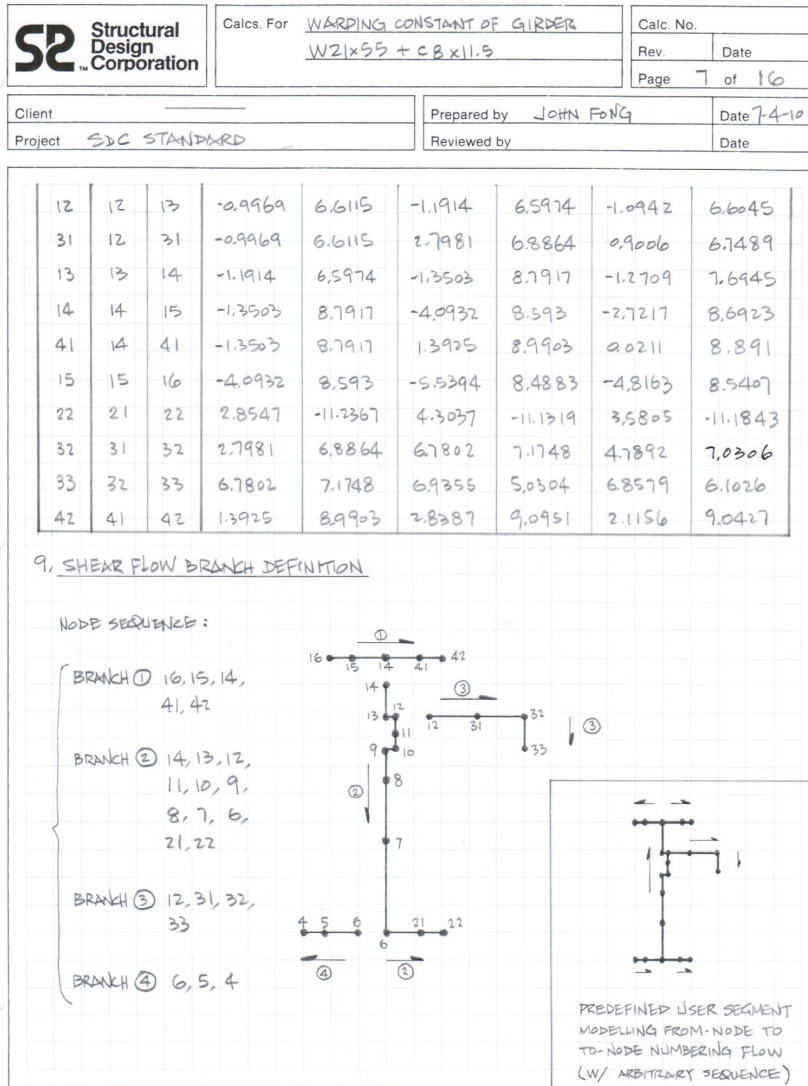 SR Structural Design Corporation ™
Calcs. For WARDING CONSTANT OF GIRDER
W21x55 + C8x11.5
Calc. No.
Rev. Date
Page 7 of 16
Client
Project SDC STANDARD
Prepared by JOHN FONG Date 7-4-10
Reviewed by Date
12 12 13 -0.9969 6.6115 -1.1914 6.5974 -1.0942 6.6045
31 12 31 -0.9969 6.6115 2.7981 6.8864 0.9006 6.7489
13 13 14 -1.1914 6.5974 -1.3503 8.7917 -1.2709 7.6945
14 14 15 -1.3503 8.7917 -4.0932 8.593 -2.7217 8.6923
41 14 41 -1.3503 8.7917 1.3925 8.9903 0.0211 8.891
15 15 16 -4.0932 8.593 -5.5394 8.4883 -4.8163 8.5407
22 21 22 2.8547 -11.2367 4.3037 -11.1319 3.5805 -11.1843
32 31 32 2.7981 6.8864 6.7802 7.1748 4.7892 7.0306
33 32 33 6.7802 7.1748 6.9355 5.0304 6.8579 6.1026
42 41 42 1.3925 8.9903 2.8387 9.0951 2.1156 9.0427
9. SHEAR FLOW BRANCH DEFINITION
NODE SEQUENCE:
BRANCH ① 16, 15, 14,
41, 42
BRANCH ② 14, 13, 12,
11, 10, 9,
8, 7, 6,
21, 22
BRANCH ③ 12, 31, 32,
33
BRANCH ④ 6, 5, 4
①
16 15 14 41 42
14
③
13 12
12 31 32
11
③
9 10
33
8
②
7
4 5 6
6 21 22
④ ②
PREDEFINED USER SEGMENT
MODELLING FROM-NODE TO
TO-NODE NUMBERING FLOW
(W/ ARBITRARY SEQUENCE)